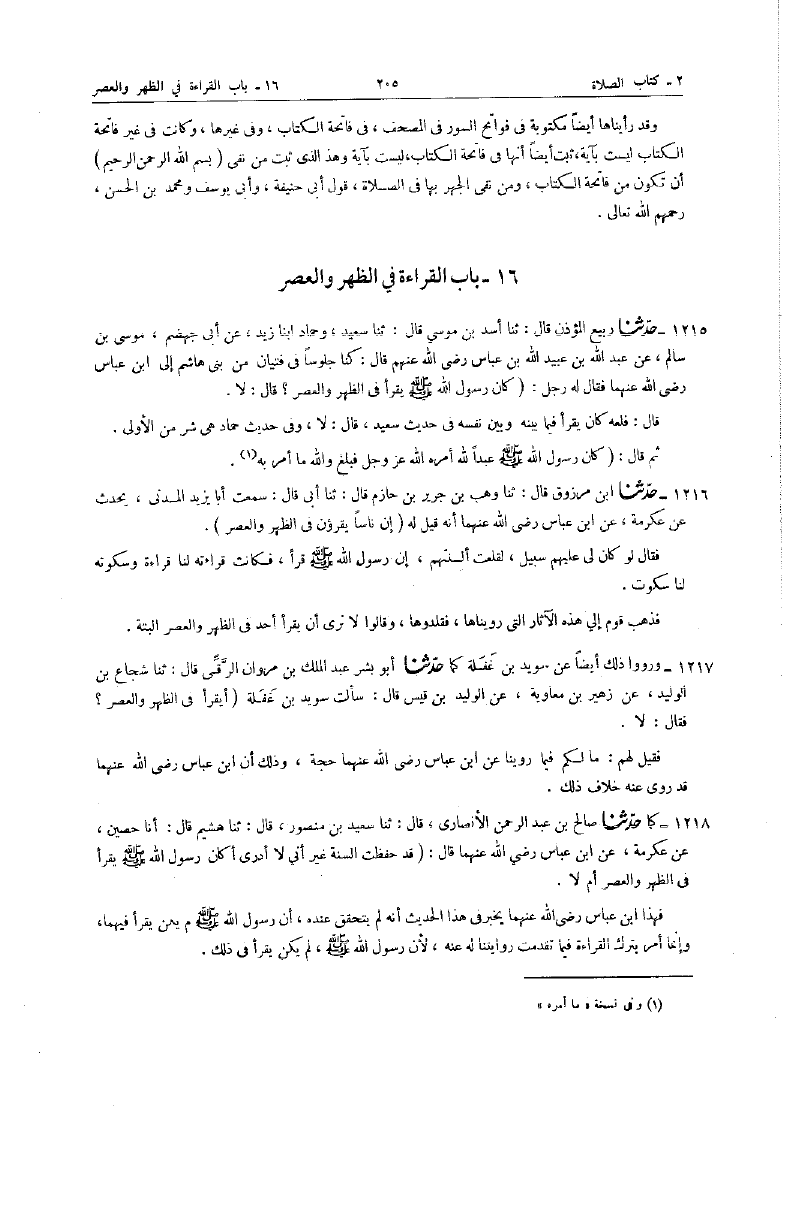 ٢ - كتاب الصلاة ٢٠٥ ١٦ - باب القراءة في الظهر والعصر
وقد رأيناها أيضاً مكتوبة في فواتح السور في المصحف ، في فاتحة الكتاب ، وفي غيرها ، وكانت في غير فاتحة
الكتاب ليست بآية، ثبت أيضاً أنها في فاتحة الكتاب، ليست بآية وهذ الذى ثبت من نفى ( بسم الله الرحمن الرحيم )
أن تكون من فاتحة الكتاب ، ومن نفى الجهر بها في الصلاة ، قول أبي حنيفة ، وأبي يوسف ومحمد بن الحسن ،
رحمهم الله تعالى .
١٦ - باب القراءة في الظهر والعصر
١٢١٥ - حدّثنا ربيع المؤذن قال : ثنا أسد بن موسي قال : ثنا سعيد ، وحماد ابنا زيد ، عن أبي جهضم ، موسى بن
سالم ، عن عبد الله بن عبيد الله بن عباس رضى الله عنهم قال : كنا جلوساً في فتيان من بنى هاشم إلى ابن عباس
رضى الله عنهما فقال له رجل : ( كان رسول الله ﷺ يقرأ في الظهر والعصر ؟ قال : لا .
قال : فلعه كان يقرأ فيما بينه وبين نفسه في حديث سعيد ، قال : لا ، وفى حديث حماد هى شر من الأولى .
ثم قال : ( كان رسول الله ﷺ عبداً لله أمره الله عز وجل فبلغ والله ما أمر به(١) .
١٢١٦ - حدّثنا ابن مرزوق قال : ثنا وهب بن جرير بن حازم قال : ثنا أبي قال : سمعت أبا يزيد المدنى ، يحدث
عن عكرمة ، عن ابن عباس رضى الله عنهما أنه قيل له ( إن ناساً يقرؤن في الظهر والعصر ) .
فقال لو كان لى عليهم سبيل ، لقلعت ألسنتهم ، إن رسول الله ﷺ قرأ ، فكانت قراءته لنا قراءة وسكوته
لنا سكوت .
فذهب قوم إلي هذه الآثار التى رويناها ، فقلدوها ، وقالوا لا نرى أن يقرأ أحد في الظهر والعصر البتة .
١٢١٧ - ورووا ذلك أيضاً عن سويد بن غَفَلة كما حدّثنا أبو بشر عبد الملك بن مروان الرَّقِّى قال : ثنا شجاع بن
الوليد ، عن زهير بن معاوية ، عن الوليد بن قيس قال : سألت سويد بن غفلة ( أيقرأ في الظهر والعصر ؟
فقال : لا .
فقيل لهم : ما لكم فيما روينا عن ابن عباس رضى الله عنهما حجة ، وذلك أن ابن عباس رضى الله عنهما
قد روى عنه خلاف ذلك .
١٢١٨ - كما حدّثنا صالح بن عبد الرحمن الأنصارى ، قال : ثنا سعيد بن منصور ، قال : ثنا هشيم قال : أنا حصين ،
عن عكرمة ، عن ابن عباس رضي الله عنهما قال : ( قد حفظت السنة غير أني لا أدرى أكان رسول الله ﷺ يقرأ
في الظهر والعصر أم لا .
فهذا ابن عباس رضى الله عنهما يخبر في هذا الحديث أنه لم يتحقق عنده ، أن رسول الله ﷺ م يعن يقرأ فيهما،
وإنما أمر بترك القراءة فيما تقدمت روايتنا له عنه ، لأن رسول الله ﷺ ، لم يكن يقرأ في ذلك .
(١) وفى نسخة « ما أمره »